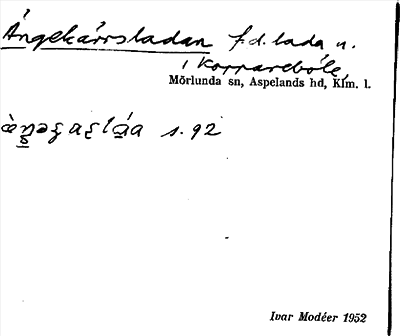 Ångekärrsladan f.d. lada n.
i Kopparebole,
Mörlunda sn, Aspelands hd, Klm. l.
s. 92
Ivar Modéer 1952